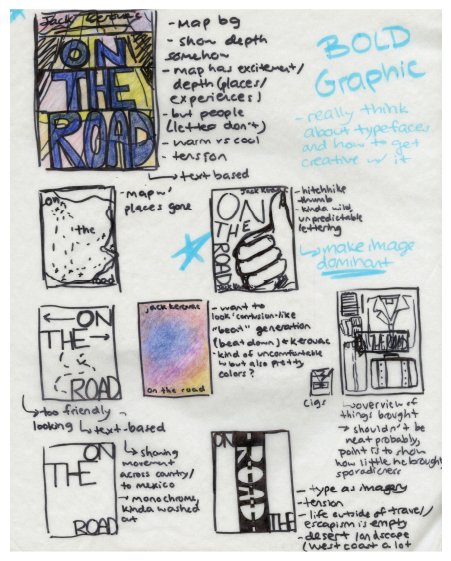 Jack Kerouac
ON
THE
ROAD
- map bg
- show depth
somehow
- map has excitement/
depth (places/
experiences)
- but people
(letters don't)
- warm vs cool
- tension
text based
BOLD
Graphic
- really think
about typefaces
and how to get
creative w/ it
on
the
road
- map w/
places gone
Jack Kerouac
ON
THE
ROAD
- hitchhike
thumb
- kinda wild,
unpredictable
lettering
make image
dominant
ON
THE
ROAD
too friendly
looking
text-based
jack kerouac
on the road
- want to
look confusion-like
"beat" generation
(beat down) + kerouac
- kind of uncomfortable
but also pretty
colors?
cigs
ON THE ROAD
overview of
things brought
shouldn't be
neat probably,
point is to show
how little he brought
sporadicness
ON
THE
ROAD
showing
movement
across country/
to mexico
monochrome,
kinda washed
out
ON
ROAD
THE
- type as imagery
- tension
- life outside of travel/
escapism is empty
- desert landscape
(west coast a lot